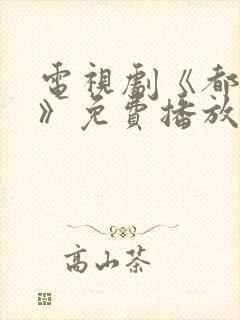 電視劇《都
》免費播放
高山茶